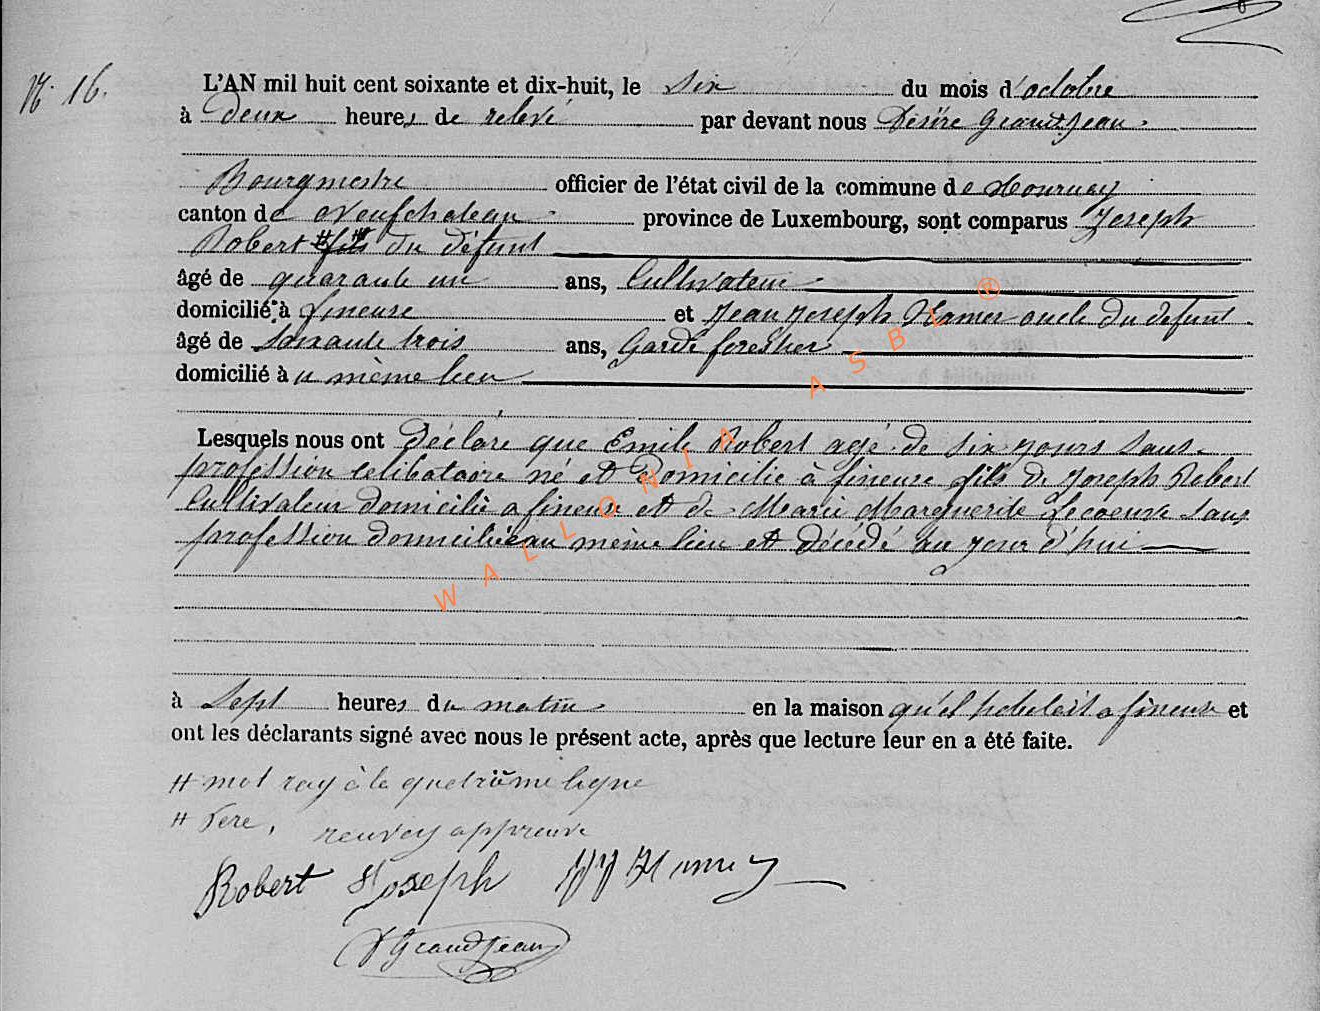 N° 16.
L'AN mil huit cent soixante et dix-huit, le Six du mois d'octobre
à Deux heures de relevé par devant nous Désiré Grandjean.
Bourgmestre officier de l'état civil de la commune de Tournay
canton de Neufchateau province de Luxembourg, sont comparus Joseph
Robert # fils # du défunt
âgé de quarante un ans, Cultivateur
domicilié à fineuse et Jean Joseph Hamer oncle du defunt
âgé de soixante trois ans, Garde forestier
domicilié à u même lieu
Lesquels nous ont Déclaré que Emile Robert agé de six jours sans
profession celibataire né et Domicilié à fineuse fils de Joseph Robert
Cultivateur domicilié a fineuse et de Marie Marguerite Lecoeuve sans
profession domiciliée au même lieu et décédé au jour d'hui
à Sept heures du matin en la maison qu'il habitait a fineuse et
ont les déclarants signé avec nous le présent acte, après que lecture leur en a été faite.
# mot ray à la quatrième ligne
# Pere, renvoy appreuve
Robert Joseph JJ Hamer
D Grandjean
WALLONIA ASBL ®